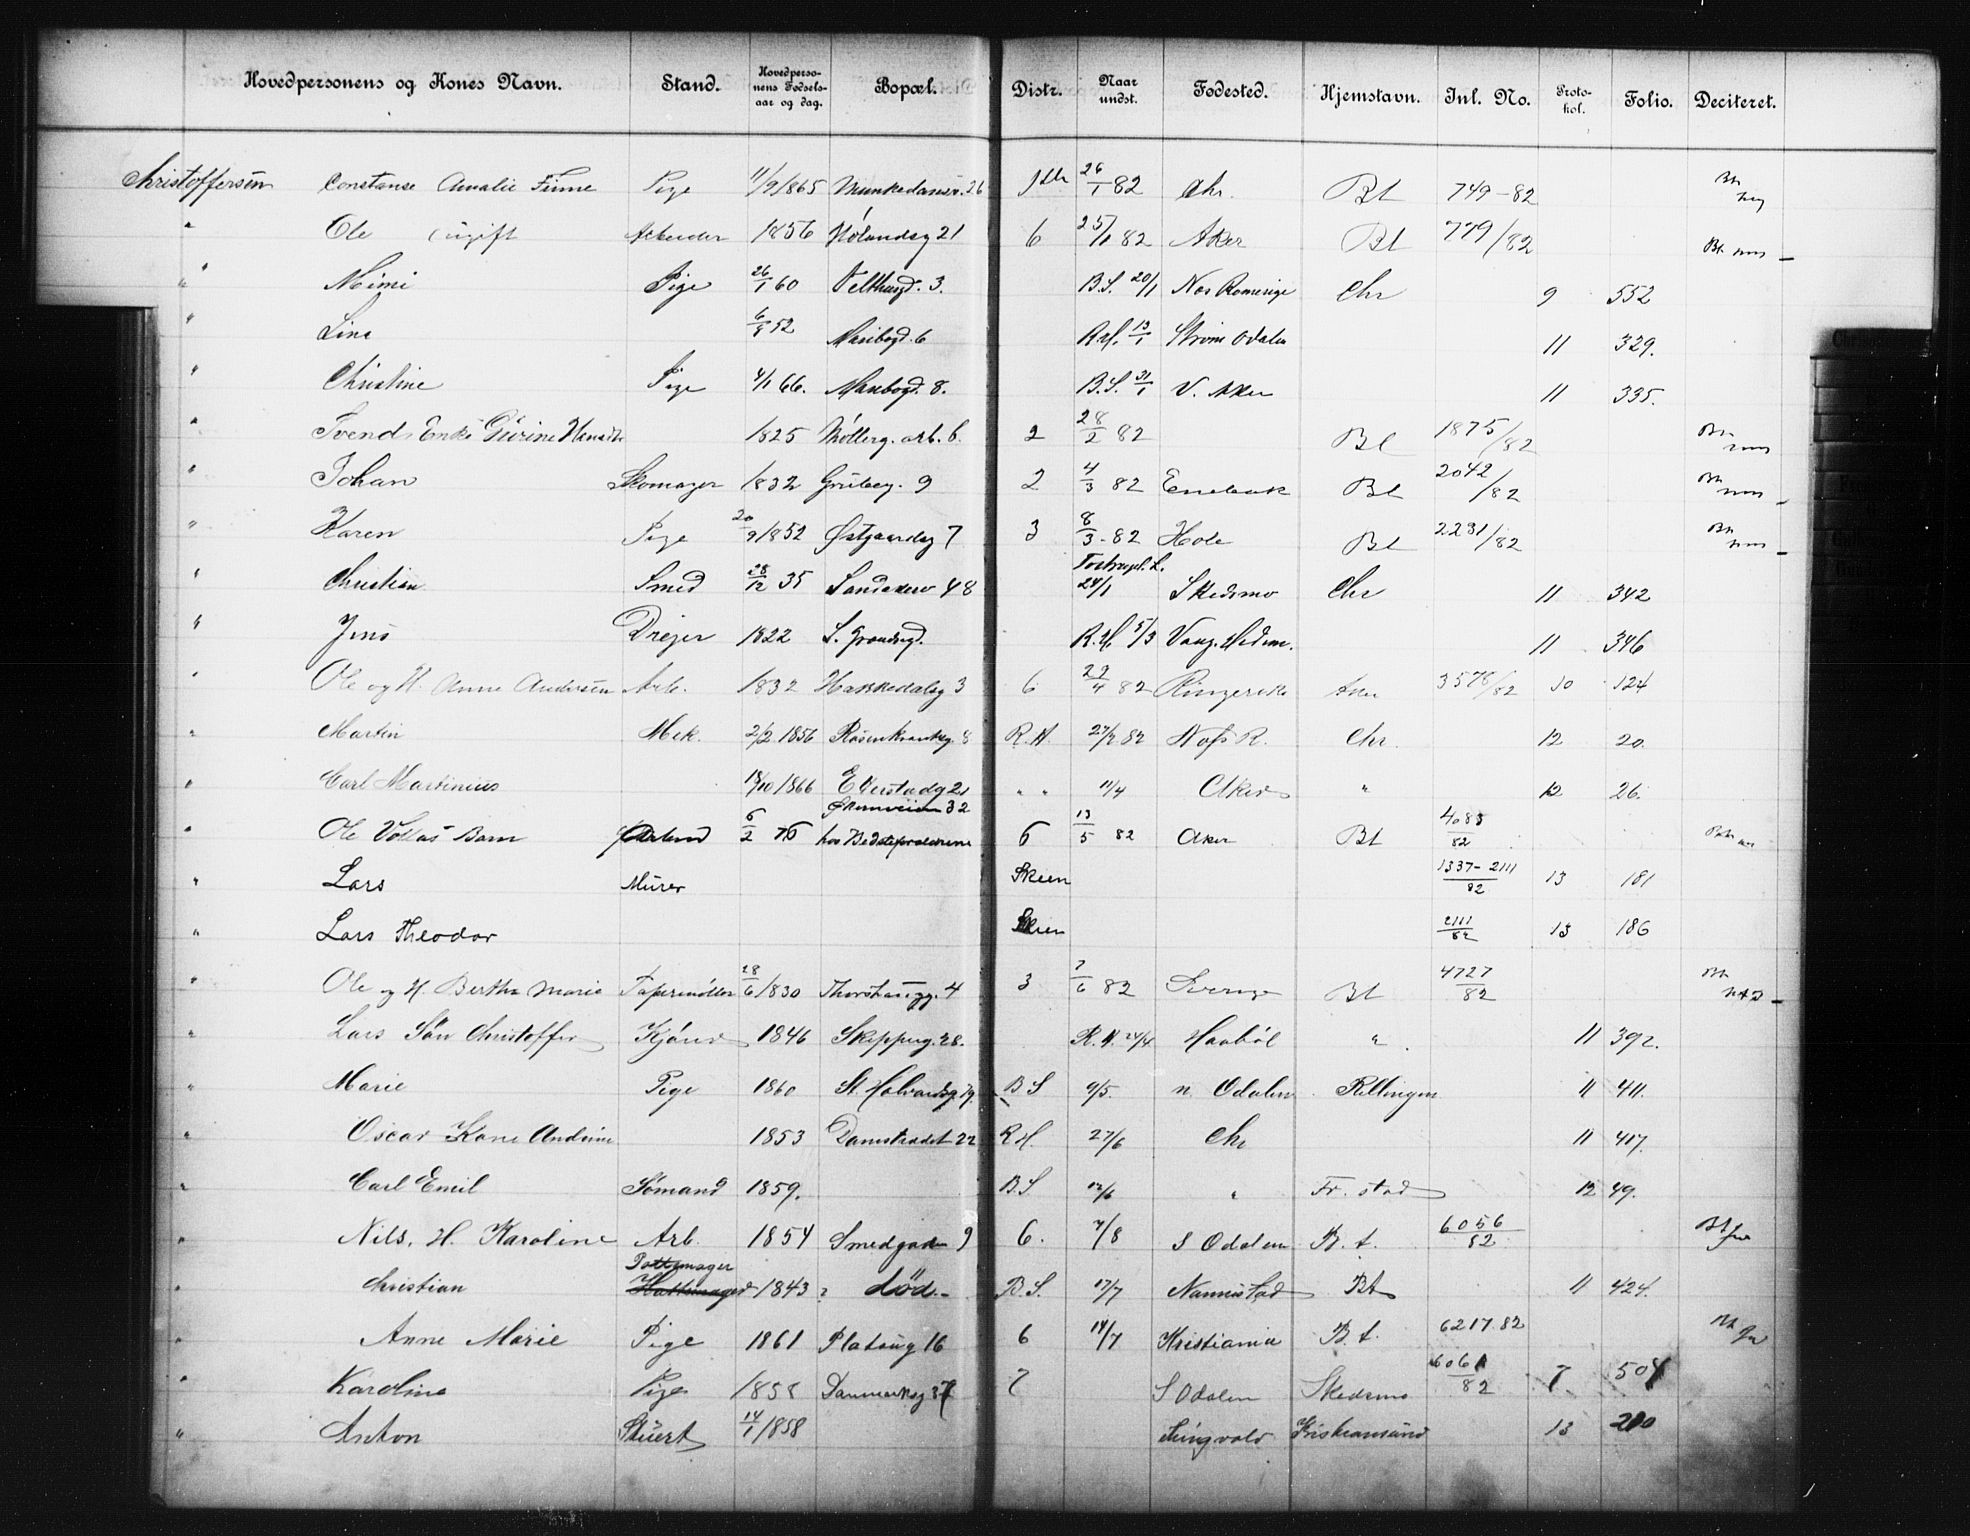 Hovedpersonens og Kones Navn. Stand. Hovedpersonens Fødselsaar og dag. Bopæl. Distr. Naar undst. Fødested. Hjemstavn. Inl. No. Protokol. Folio. Deciteret.
Christoffersen Constanse Amalie Pige 11/9 1865 Munkedamsv. 26 26/1 82 Chr. Bt 749-82
" Ole ugift Arbeider 1856 21 6 25/1 82 Aker Bt 779/82
" Mimi Pige 26/1 60 3. B.S. 20/1 Nes Romerige Chr 9 552
" Line 6/5 52 Maribogd. 6 R.H. 13/1 Odalen 11 329.
" Christine Pige 4/1 66. Maribogd. 8. B.S. 31/1 V. Aker 11 335.
" Svends Enke Gurine 1825 Møllerg. arb. 6. 2 28/2 82 Bt 1875/82
" Johan Skomager 1832 Grubeg. 9 2 4/3 82 Enebak Bt 2042/82
" Karen Pige 20/9 1852 Østgaardsg 7 3 8/3 - 82 Hole Bt 2231/82
" Christian Smed 28/12 35 Sandakerv 48 24/1 Skedsmo Chr 11 342
" Jens Drejer 1822 R.H. 5/3 Vang. Hedem. 11 346
" Ole og H. Anne Andersen Arb. 1832 Hakkedalsg 3 6 29/4 82 Ringerike Aker 3578/82 10 124
" Martin Mek. 2/2 1856 Rosenkrantsg. 8 R.H. 27/2 82 Næs R. Chr. 12 20.
" Carl Martinius 18/10 1866 Ekerstadg 21 " " 11/4 Aker " 12 26.
" Ole Børn 6/2 76 32 hos Bedsteforældrene 6 13/5 82 Aker Bt 4083/82
" Lars Murer Skien 1337-2111/82 13 181
" Lars Theodor Skien 2111/82 13 186
" Ole og H. Bertha Marie 28/6 1830 Thorshaugg. 4 3 7/6 82 Sverige Bt 4727/82
" Lars Søn Christoffer Kjører 1846 Skipperg. 28. R.H. 24/4 Haabøl " 11 392.
" Marie Pige 1860 St. Halvardsg. 19. B S 9/5. n Odalen Rellingen 11 411.
" Oscar Kone Andrine 1853 Damstrædet 22 R H. 27/6 Chr 11 417.
" Carl Emil Sømand 1859. B S 12/6 " Fr. stad 12 49.
" Nils, H. Karoline Arb. 1854 Smedgaden 9 6. 7/8 S Odalen B. t. 6056/82
" Christian Pottemager Hattemager 1843 død. - B. S. 17/7 Nannestad Bt 11 424.
" Anne Marie Pige 1861 Platoug 16 6 14/7 Kristiania B. t. 6217. 82
" Karoline Pige 1858 Danmarksg 37 7 S Odalen Skedsmo 6061/82 7 504
" Anton Stuert 14/1 1858 Tingvold Kristiansund 13 210